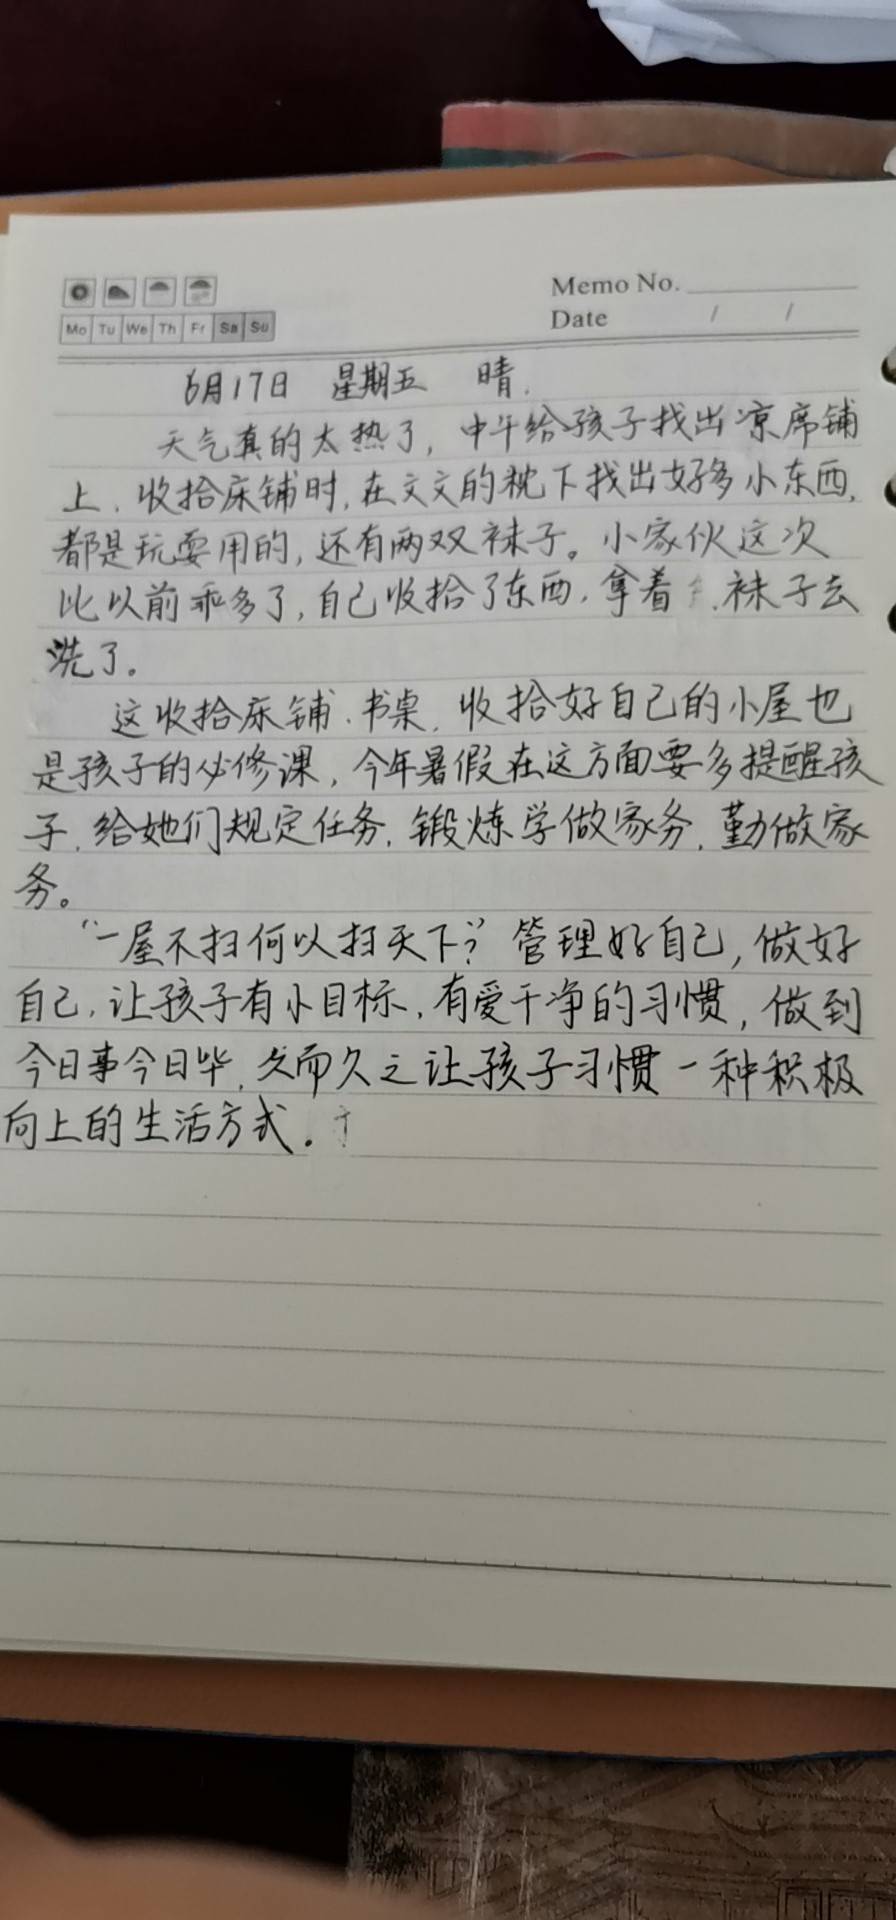 Memo No.
Date / /
Mo Tu We Th Fr Sa Su
6月17日 星期五 晴.
天气真的太热了,中午给孩子找出凉席铺
上.收拾床铺时,在文文的枕下找出好多小东西,
都是玩耍用的,还有两双袜子。小家伙这次
比以前乖多了,自己收拾了东西,拿着袜子去
洗了.
这收拾床铺.书桌,收拾好自己的小屋也
是孩子的必修课,今年暑假在这方面要多提醒孩
子,给她们规定任务,锻炼学做家务,勤做家
务。
“一屋不扫何以扫天下?管理好自己,做好
自己,让孩子有小目标,有爱干净的习惯,做到
今日事今日毕,久而久之让孩子习惯一种积极
向上的生活方式.